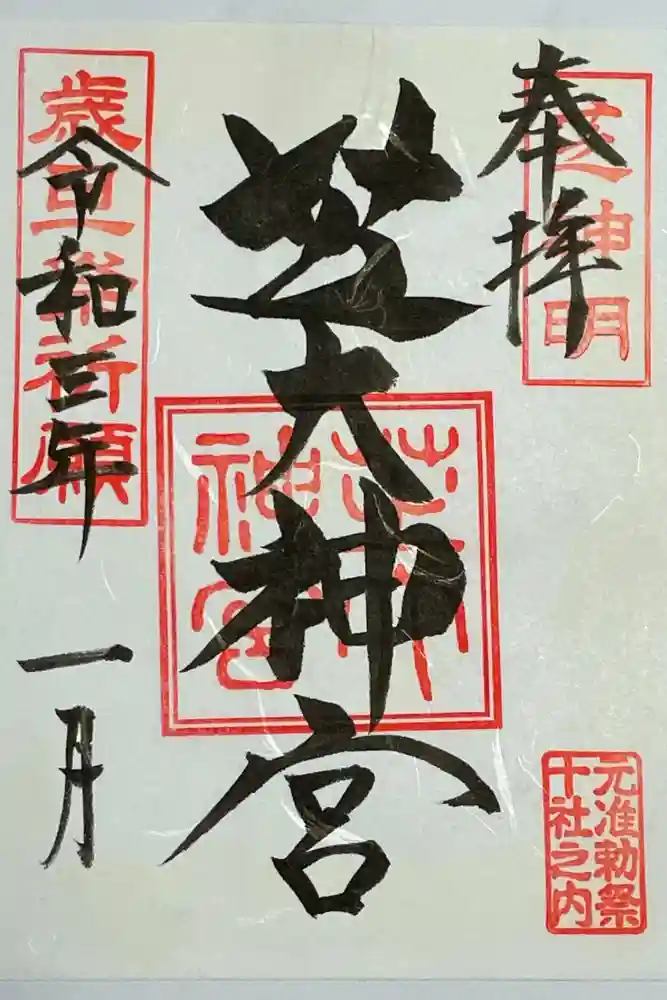 奉拝
芝神明
元准勅祭
十社之内
芝大神宮
芝大
神宮
令和三年
一月
歳旦祭祈願